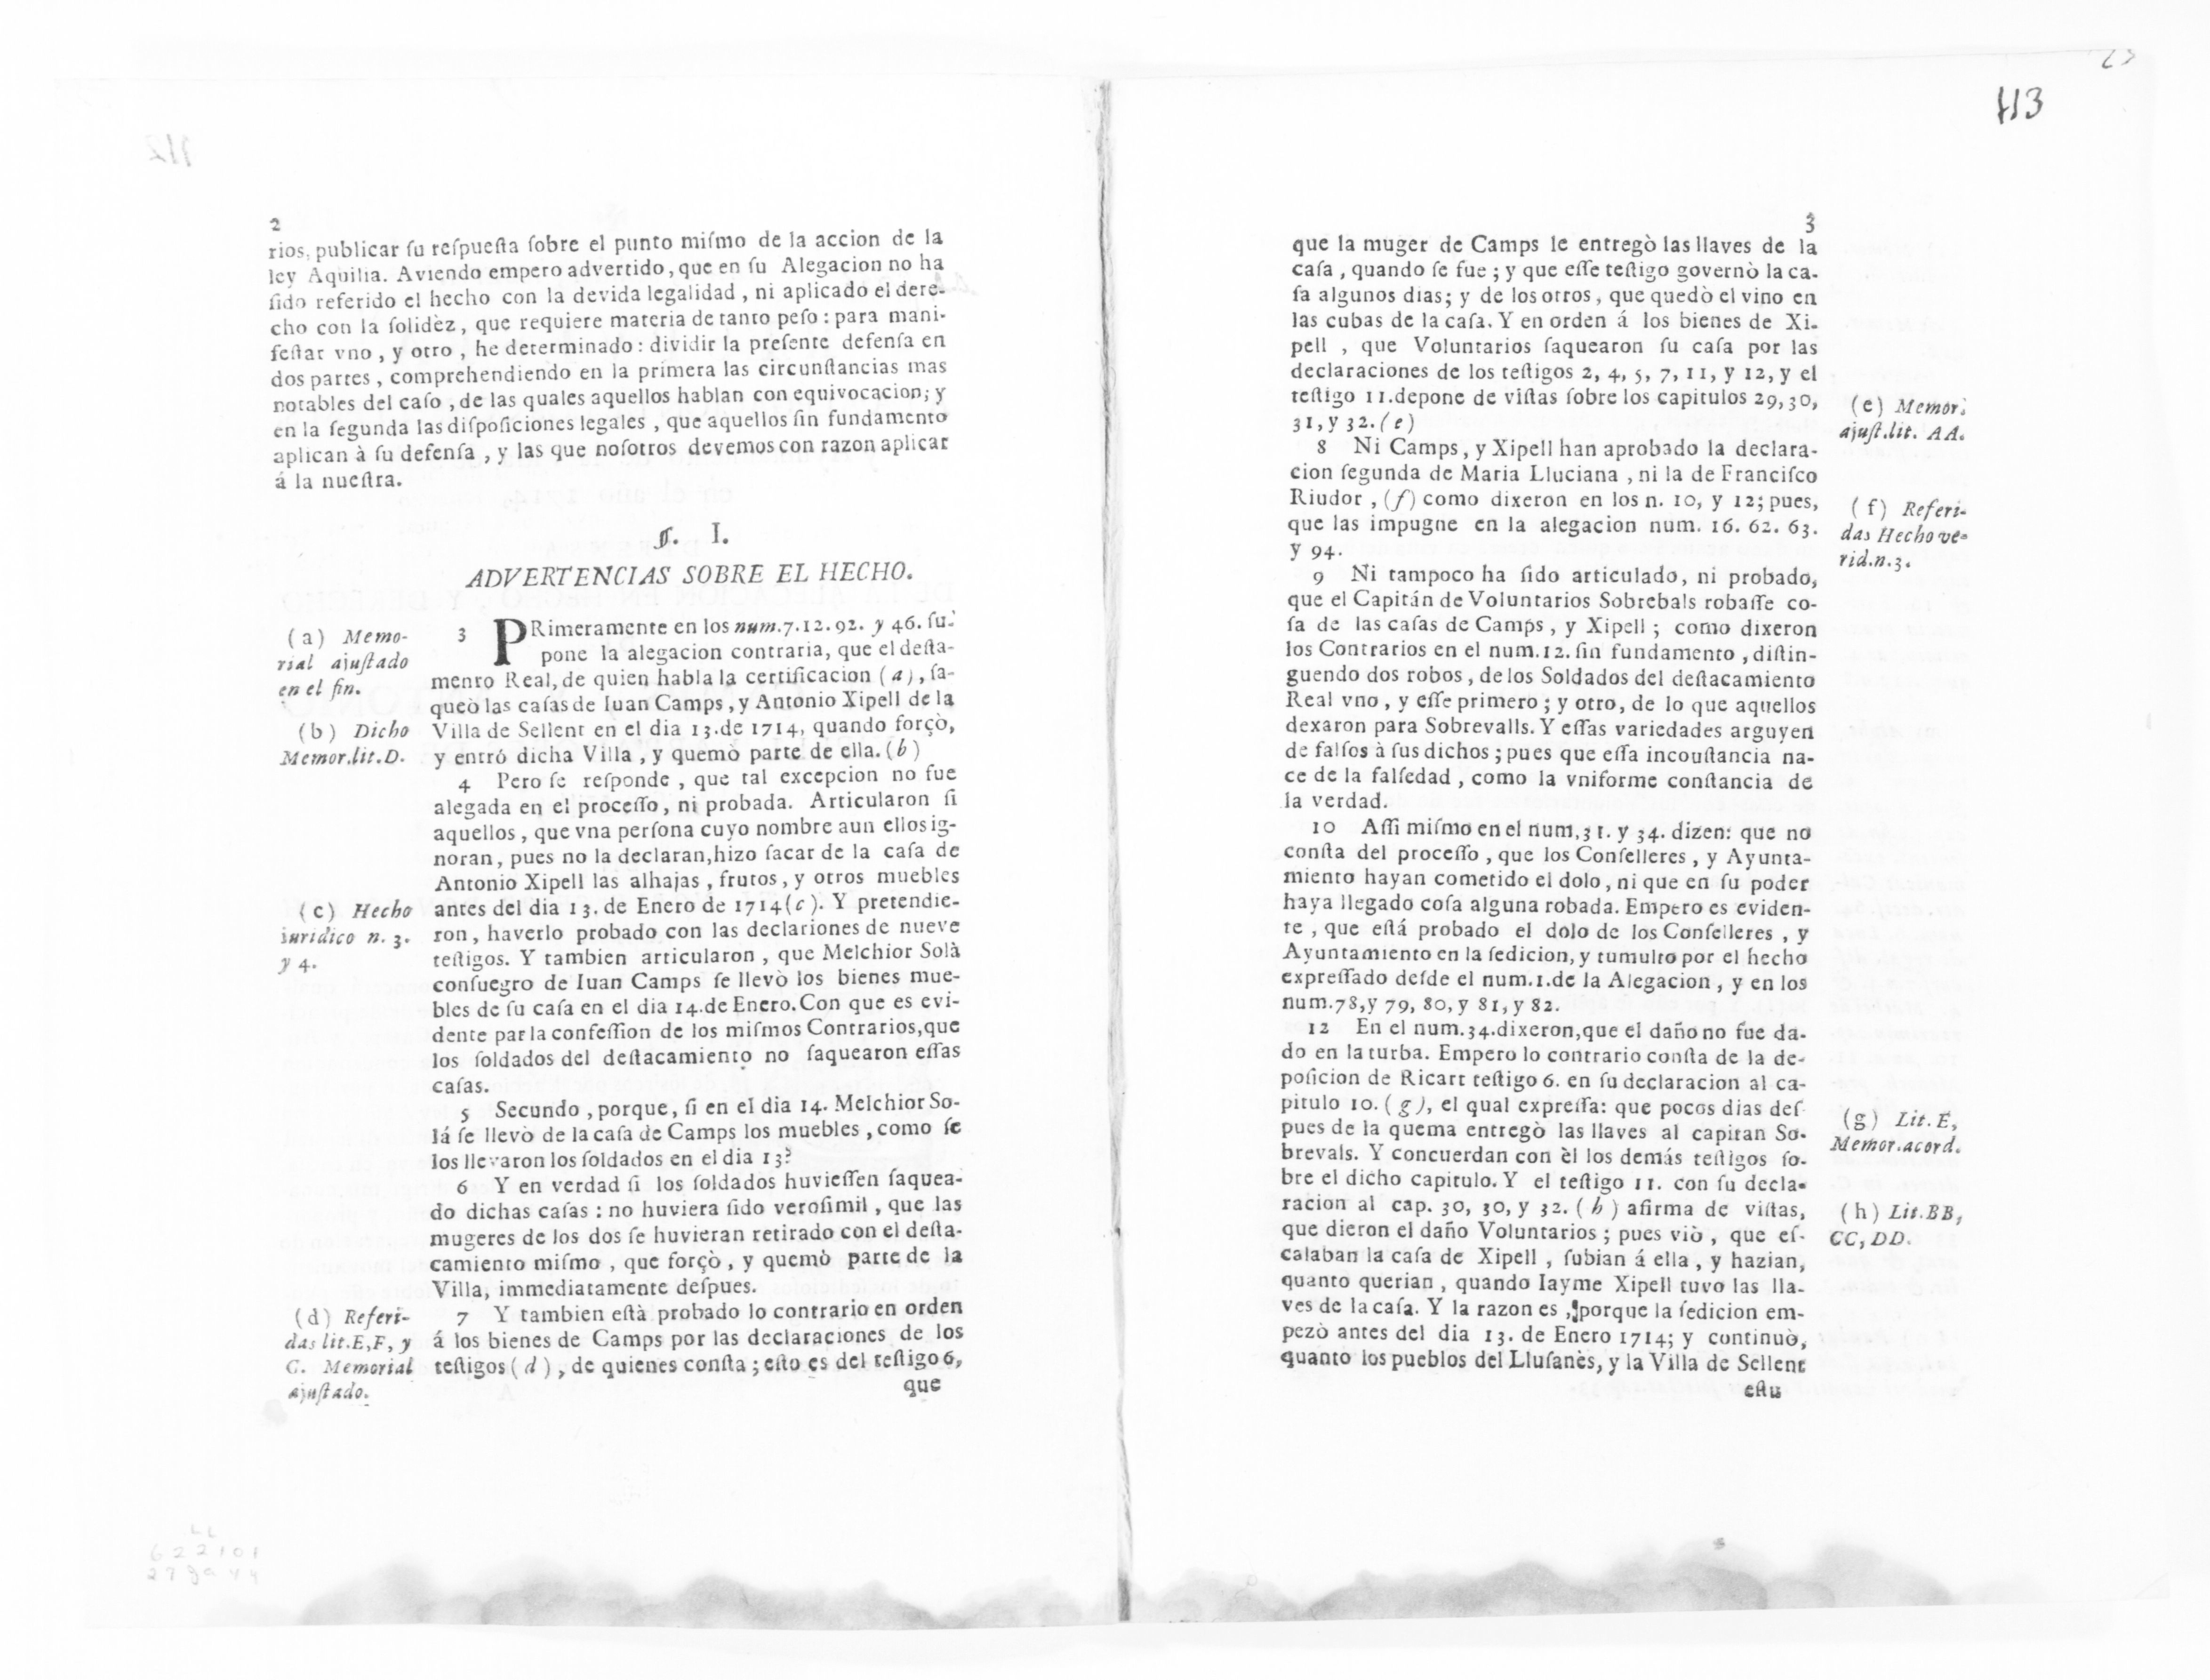 113
2
rios, publicar ſu reſpueſta ſobre el punto miſmo de la accion de la
ley Aquilia. Aviendo empero advertido, que en ſu Alegacion no ha
ſido referido el hecho con la devida legalidad, ni aplicado el dere-
cho con la ſolidèz, que requiere materia de tanto peſo: para mani-
feſtar vno, y otro, he determinado: dividir la preſente defenſa en
dos partes, comprehendiendo en la primera las circunſtancias mas
notables del caſo, de las quales aquellos hablan con equivocacion; y
en la ſegunda las diſpoſiciones legales, que aquellos ſin fundamento
aplican à ſu defenſa, y las que noſotros devemos con razon aplicar
á la nueſtra.
§. I.
ADVERTENCIAS SOBRE EL HECHO.
3 PRimeramente en los num.7.12.92. y 46. ſu-
pone la alegacion contraria, que el deſta-
mento Real, de quien habla la certificacion (a), ſa-
queò las caſas de Iuan Camps, y Antonio Xipell de la
Villa de Sellent en el dia 13.de 1714, quando forçò,
y entró dicha Villa, y quemò parte de ella. (b)
4 Pero ſe reſponde, que tal excepcion no fue
alegada en el proceſſo, ni probada. Articularon ſi
aquellos, que vna perſona cuyo nombre aun ellos ig-
noran, pues no la declaran, hizo ſacar de la caſa de
Antonio Xipell las alhajas, frutos, y otros muebles
antes del dia 13. de Enero de 1714(c). Y pretendie-
ron, haverlo probado con las declariones de nueve
teſtigos. Y tambien articularon, que Melchior Solà
conſuegro de Iuan Camps ſe llevò los bienes mue-
bles de ſu caſa en el dia 14.de Enero. Con que es evi-
dente par la confeſſion de los miſmos Contrarios, que
los ſoldados del deſtacamiento no ſaquearon eſſas
caſas.
5 Secundo, porque, ſi en el dia 14. Melchior So-
lá ſe llevò de la caſa de Camps los muebles, como ſe
los llevaron los ſoldados en el dia 13?
6 Y en verdad ſi los ſoldados huvieſſen ſaquea-
do dichas caſas: no huviera ſido veroſimil, que las
mugeres de los dos ſe huvieran retirado con el deſta-
camiento miſmo, que forçò, y quemò parte de la
Villa, immediatamente deſpues.
7 Y tambien eſtà probado lo contrario en orden
á los bienes de Camps por las declaraciones de los
teſtigos (d), de quienes conſta; eſto es del teſtigo 6,
que
(a) Memo-
rial ajuſtado
en el fin.
(b) Dicho
Memor.lit.D.
(c) Hecho
iuridico n. 3.
y 4.
(d) Referi-
das lit.E,F, y
G. Memorial
ajuſtado.
3
que la muger de Camps le entregò las llaves de la
caſa, quando ſe fue; y que eſſe teſtigo governò la ca-
ſa algunos dias; y de los otros, que quedò el vino en
las cubas de la caſa. Y en orden á los bienes de Xi-
pell, que Voluntarios ſaquearon ſu caſa por las
declaraciones de los teſtigos 2, 4, 5, 7, 11, y 12, y el
teſtigo 11.depone de viſtas ſobre los capitulos 29, 30,
31, y 32. (e)
8 Ni Camps, y Xipell han aprobado la declara-
cion ſegunda de Maria Lluciana, ni la de Franciſco
Riudor, (f) como dixeron en los n. 10, y 12; pues,
que las impugne en la alegacion num. 16. 62. 63.
y 94.
9 Ni tampoco ha ſido articulado, ni probado,
que el Capitán de Voluntarios Sobrebals robaſſe co-
ſa de las caſas de Camps, y Xipell; como dixeron
los Contrarios en el num.12. ſin fundamento, diſtin-
guendo dos robos, de los Soldados del deſtacamiento
Real vno, y eſſe primero; y otro, de lo que aquellos
dexaron para Sobrevalls. Y eſſas variedades arguyen
de falſos à ſus dichos; pues que eſſa incouſtancia na-
ce de la falſedad, como la vniforme conſtancia de
la verdad.
10 Aſſi miſmo en el num,31. y 34. dizen: que no
conſta del proceſſo, que los Conſelleres, y Ayunta-
miento hayan cometido el dolo, ni que en ſu poder
haya llegado coſa alguna robada. Empero es eviden-
te, que eſtá probado el dolo de los Conſelleres, y
Ayuntamiento en la ſedicion, y tumulto por el hecho
expreſſado deſde el num.1.de la Alegacion, y en los
num.78,y 79, 80, y 81, y 82.
12 En el num.34.dixeron, que el daño no fue da-
do en la turba. Empero lo contrario conſta de la de-
poſicion de Ricart teſtigo 6. en ſu declaracion al ca-
pitulo 10. (g), el qual expreſſa: que pocos dias deſ-
pues de la quema entregò las llaves al capitan So-
brevals. Y concuerdan con èl los demás teſtigos ſo-
bre el dicho capitulo. Y el teſtigo 11. con ſu decla-
racion al cap. 30, 30, y 32. (h) afirma de viſtas,
que dieron el daño Voluntarios; pues viò, que eſ-
calaban la caſa de Xipell, ſubian á ella, y hazian,
quanto querian, quando Iayme Xipell tuvo las lla-
ves de la caſa. Y la razon es, porque la ſedicion em-
pezò antes del dia 13. de Enero 1714; y continuò,
quanto los pueblos del Lluſanès, y la Villa de Sellent
eſtu
(e) Memor.
ajuſt.lit. AA.
(f) Referi-
das Hecho ve-
rid.n.3.
(g) Lit. E,
Memor.acord.
(h) Lit.BB,
CC, DD.